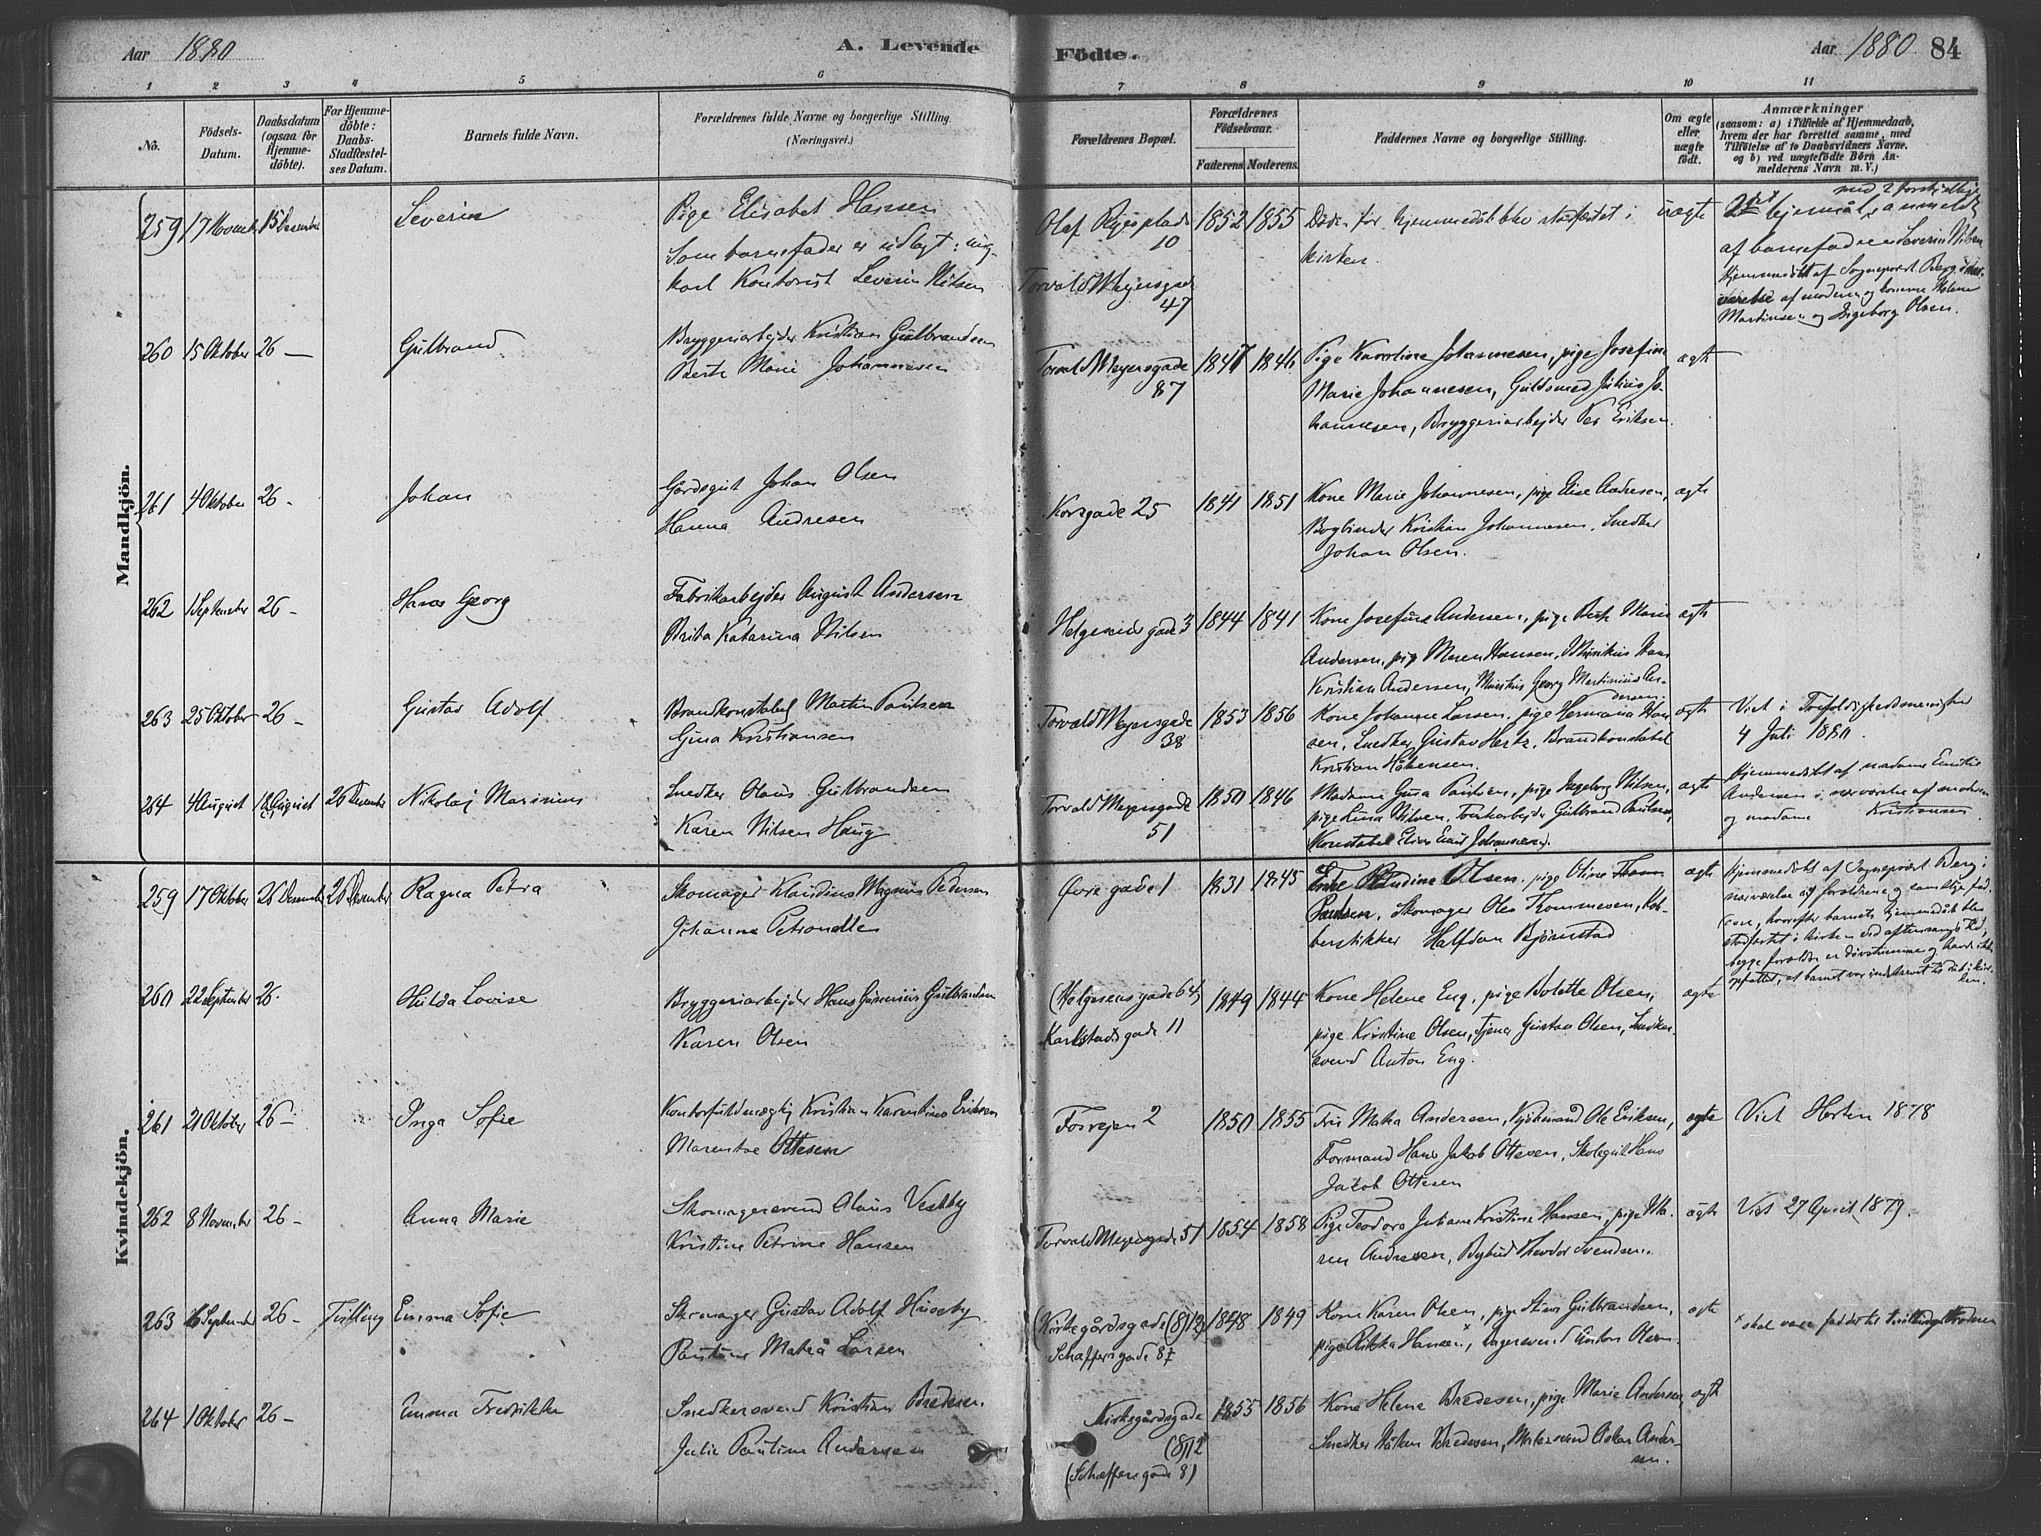 Aar 1880
A. Levende
Födte.
Aar 1880 84
1 2 3 4 5 6 7 8 9 10 11
No.
Födsels-Datum.
Daabsdatum (ogsaa for Hjemmedöbte).
For Hjemmedöbte: Daabs-Stadfæstelses Datum.
Barnets fulde Navn.
Forældrenes fulde Navne og borgerlige Stilling.
(Næringsvei.)
Forældrenes Bopæl.
Forældrenes Födselsaar.
Faderens. Moderens.
Faddernes Navne og borgerlige Stilling.
Om ægte eller uægte födt.
Anmærkninger
(saasom: a) i Tilfælde af Hjemmedaab, hvem der har forrettet samme, med Tilföielse af to Daabsvidners Navne, og b) ved uægtefödte Börn Anmelderens Navn m. V.)
Mandkjön.
259 17 November 15 Desember Severin
Pige Elisabet Hansen
Som barnefader er udlagt: ung-
karl Kontorist Severin Nilsen
Olaf Ryesplads
10
Torvald Meyersgade
47
1852 1855
Døden før hjemmedåb blev stadfæstet i
kirken.
uægte
af barnefaderen Severin Nilsen
Hjemmedøbt af Sogneprest Berg i nær-
værelse af moderen og konerne Helene
Martinsen og Ingeborg Olsen.
260 15 Oktober 26 — Gulbrand
Bryggeriarbejder Kristian Gulbrandsen
Berte Marie Johannesen
Torvald Meyersgade
87
1847 1846
Pige Karoline Johannesen, pige Josefine
Marie Johannesen, Guldsmed Julius Jo-
hannesen, Bryggeriarbejder Per Eriksen.
ægte
261 4 Oktober 26 - Johan
Gårdsgut Johan Olsen
Hanna Andresen
Korsgade 25
1841 1851
Kone Marie Johannesen, pige Elise Andresen,
Bogbinder Kristian Johannesen, Snedker
Johan Olsen.
ægte
262 1 September 26 - Hans Georg
Fabrikarbejder August Andersen
Brita Katarina Nilsen
Helgesens gade 3
1844 1841
Kone Josefine Andersen, pige Berte Marie
Andersen, pige Maren Hansen, Musikus Hans
Kristian Andersen, Musikus Georg Martinius An-
dersen.
ægte
263 25 Oktober 26 - Gustav Adolf
Brandkonstabel Martin Paulsen
Gina Kristiansen
Torvald Meyersgade
38
1853 1856
Kone Johanne Larsen, pige Hermania Han-
sen, Snedker Gustav Hertz, Brandkonstabel
Kristian Håkensen.
ægte
Viet i Trefoldighedsmenighed
4 Juli 1880.
264 4 August August 26 Desember Nikolaj Marinius
Snedker Olaus Gulbrandsen
Karen Nilsen Haug
Torvald Meyersgade
51
1850 1846
Madame Gusta Paulsen, pige Ingeborg Nilsen,
pige Lina Nilsen, Gulbrand Paulsen,
Konstabel Elias Emil Johannesen.
ægte
Hjemmedøbt af madame Emilie
Andersen i nærværelse af moderen
og madame Kristiansen
Kvindekjön.
259 17 Oktober 26 Desember 26 Desember Ragna Petra
Skomager Klaudius Magnus Pedersen
Johanne Petronelle
Øvre gade 1
1831 1845
Enke Blandine Olsen, pige Oline
Paulsen, Skomager Ole Thommesen, Kob-
berstikker Halfdan Bjørnstad
ægte
Hjemmedøbt af Sogneprest Berg i
nærværelse af forældrene og samtlige fad-
rene, hvorefter barnets hjemmedåb blev
stadfæstet i kirken ved aftensangs tid,
begge forældre er døvstumme og havde ikke
opfattet, at barnet var indskrevet til dåb i kir-
ken.
260 22 September 26. Hilda Lovise
Bryggeriarbejder Hans Gulbrandsen
Karen Olsen
(Helgesens gade 64)
Karlstadsgade 11
1849 1844
Kone Helene Eng, pige Bolette Olsen,
pige Kristine Olsen, tjener Gustav Olsen, Snedker-
svend Anton Eng.
ægte
261 21 Oktober 26 - Inga Sofie
Kontorfuldmægtig Kristian Karentius Eriksen
Marentse Ottesen
Fosvejen 2
1850 1855
Fru Matea Andersen, Kjøbmand Ole Eriksen,
Formand Hans Jakob Ottesen, Skolegut Hans
Jakob Ottesen
ægte
Viet Horten 1878
262 8 November 26 - Anna Marie
Skomagersvend Olaus Vestby
Kristine Petrine Hansen
Torvald Meyersgade 51
1854 1858
Pige Teodora Juliane Kristine Hansen, pige Ma-
ren Andresen, Bybud Theodor Svendsen.
ægte
Viet 27 April 1879.
263 16 September 26 - Tvilling Emma Sofie
Skomager Gustav Adolf Huseby
Pauline Matea Larsen
(Kirkegårdsgade (8) 12)
Schæffersgade 8
1848 1849
Kone Karen Olsen, pige Stine Gulbrandsen,
pige Rikka Hansen x, Lagersvend Anton Olsen.
ægte
x skal være fadder til
264 1 Oktober 26 - Emma Fredrikke
Snedkersvend Kristian Bredesen
Julie Pauline Andersen
Kirkegårdsgade
(8) 12
(Schæffersgade 8)
1855 1856
Kone Helene Bredesen, pige Marie Andersen,
Snedker Håken Bredesen, Malersvend Oskar Ander-
sen.
ægte